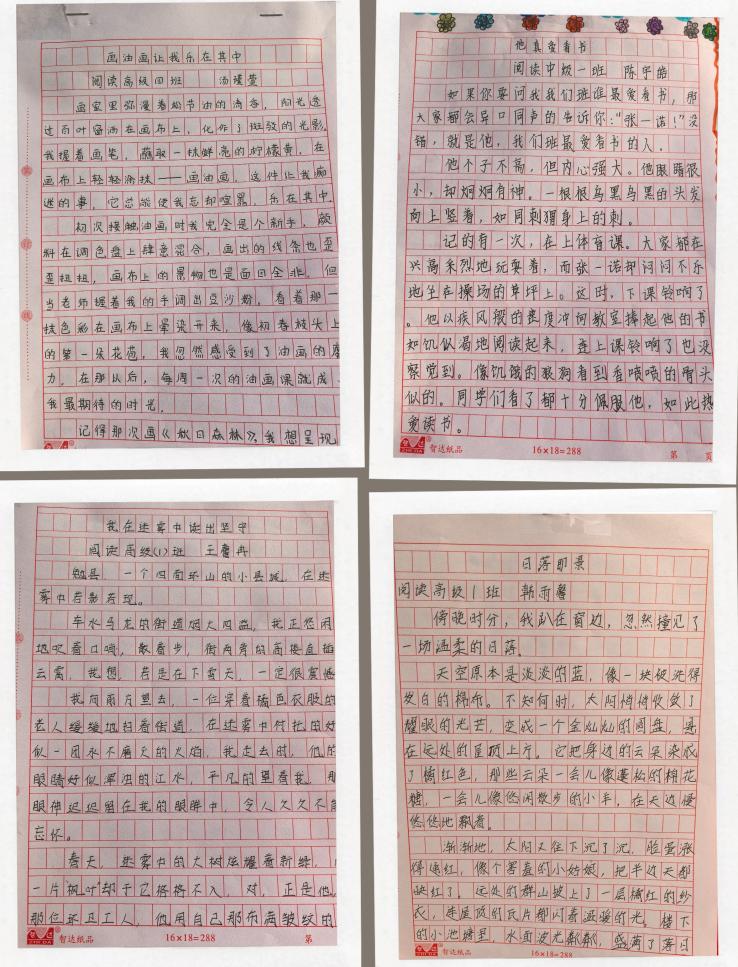 画油画让我乐在其中
阅读高级四班 汤瑾萱
画室里弥漫着松节油的清香，阳光透
过百叶窗洒在画布上，化作了斑驳的光影。
我握着画笔，蘸取一抹鲜亮的柠檬黄，在
画布上轻轻涂抹——画油画，这件让我痴
迷的事，它总能使我忘却喧嚣，乐在其中。
初次接触油画时我完全是个新手，颜
料在调色盘上肆意混合，画出的线条也歪
歪扭扭，画布上的景物也是面目全非。但
当老师握着我的手调出豆沙粉，看着那一
抹色彩在画布上晕染开来，像初春枝头上
的第一朵花苞，我忽然感受到了油画的魔
力。在那以后，每周一次的油画课就成
我最期待的时光。
记得那次画《秋日森林》，我想呈现
ZHI DA
他真爱看书
阅读中级一班 陈宇皓
如果你要问我我们班谁最爱看书，那
大家都会异口同声的告诉你：“张一诺！”没
错，就是他，我们班最爱看书的人。
他个子不高，但内心强大。他眼睛很
小，却炯炯有神。一根根乌黑乌黑的头发
向上竖着，如同刺猬身上的刺。
记的有一次，在上体育课。大家都在
兴高采烈地玩耍着，而张一诺却闷闷不乐
地坐在操场的草坪上。这时，下课铃响了
。他以疾风般的速度冲向教室捧起他的书
如饥似渴地阅读起来，连上课铃响了也没
察觉到。像饥饿的狼狗看到香喷喷的骨头
似的。同学们看了都十分佩服他，如此热
爱读书。
ZHI DA 智达纸品 16×18=288 第 页
我在迷雾中读出坚守
阅读高级(1)班 王馨冉
勉县，一个四面环山的小县城，在迷
雾中若影若现。
车水马龙的街道烟火四溢，我正悠闲
地吹着口哨，散着步，街两旁的高楼直插
云霄，我想，若是在下雪天，一定很震撼
我向前方望去，一位穿着橘色衣服的
老人缓缓地扫着街道，在迷雾中衬托的好
似一团永不磨灭的火焰。我走去时，他的
眼睛好似浑浊的江水，平凡的望着我。那
眼神迟迟留在我的眼眸中，令人久久不能
忘怀。
春天，迷雾中的大树炫耀着新绿，
一片枫叶却干它格格不入。对，正是他，
那位环卫工人，他用自己那布满皱纹的
ZHI DA 智达纸品 16×18=288 第
日落即景
阅读高级1班 韩雨馨
傍晚时分，我趴在窗边，忽然撞见了
一切温柔的日落。
天空原本是淡淡的蓝，像一块被洗得
发白的棉布。不知何时，太阳悄悄收敛了
耀眼的光芒，变成一个金灿灿的圆盘，悬
在远处的屋顶上方。它把身边的云朵染成
了橘红色，那些云朵一会儿像蓬松的棉花
糖，一会儿像悠闲散步的小羊，在天边慢
悠悠地飘着。
渐渐地，太阳又往下沉了沉，脸蛋涨
得通红，像个害羞的小姑娘，把半边天都
映红了。远处的群山披上了一层橘红的纱
衣，连屋顶的瓦片都闪着温暖的光。楼下
的小池塘里，水面波光粼粼，盛满了落日
智达纸品 16×18=288